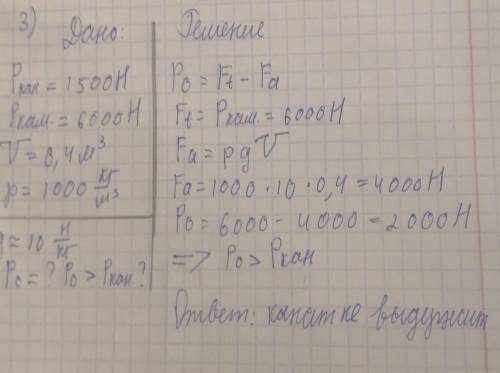 3)
Дано:
Pкан = 1500Н
Pкам. = 6000Н
V = 0,4м³
p = 1000 кг/м³
g ≈ 10 Н/кг
Po = ? Po > Pкан?
Решение
Po = Ft - Fa
Ft = Pкам. = 6000Н
Fa = p g V
Fa = 1000 · 10 · 0,4 = 4000Н
Po = 6000 - 4000 = 2000Н
=> Po > Pкан
Ответ: канат не выдержит